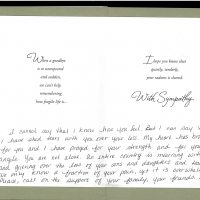 When a goodbye
is so unexpected
and sudden,
we can't help
remembering
how fragile life is...
I hope you know that
quietly, tenderly,
your sadness is shared.
With Sympathy
I cannot say that I know how you feel. But I can say that
I have shed tears with you over your loss. My heart has broken
for you and I have prayed for your strength and for your
You are not alone. An entire country is mourning with
and grieving over the loss of your sons and daughters and
We only know a fraction of your pain, yet it is
Please, call on the support of your family, your friends